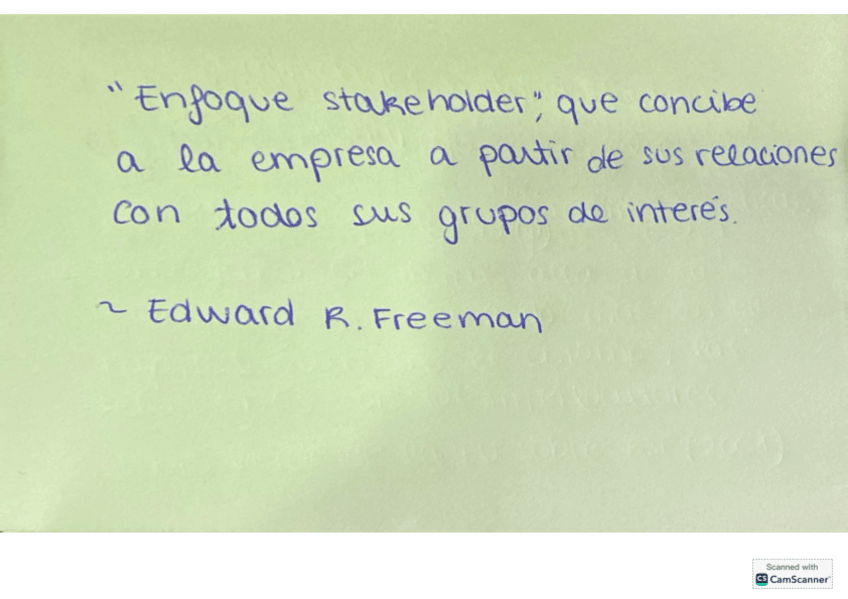 "Enfoque stakeholder", que concibe
a la empresa a partir de sus relaciones
con todos sus grupos de interés.
~ Edward R. Freeman
Scanned with
CS CamScanner